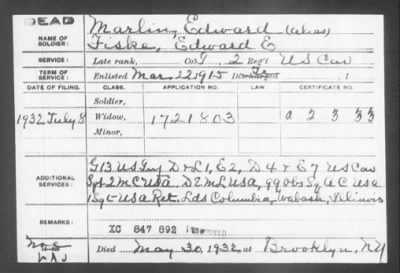 DEAD
NAME OF SOLDIER:
Marlin, Edward (alias)
Fiske, Edward E
SERVICE:
Late rank, Co. 2 Reg't U S Cav
TERM OF SERVICE:
Enlisted Mar 22 1915
DATE OF FILING. CLASS. APPLICATION NO. LAW. CERTIFICATE NO.
Soldier,
1932 July 8 Widow, 1721803 a 2 3 33
Minor,
ADDITIONAL SERVICES:
G 13 US Inf D & L 1, E 2, D 4 & E 7 US Cav
Sgt 2 M C USA. D 2 M L USA, 99 Obs Sq A C USA
1 Sgt USA Ret. Lds Columbia, Wabash, Illinois
REMARKS:
XC 847 892
Died May 30, 1932, at Brooklyn, NY